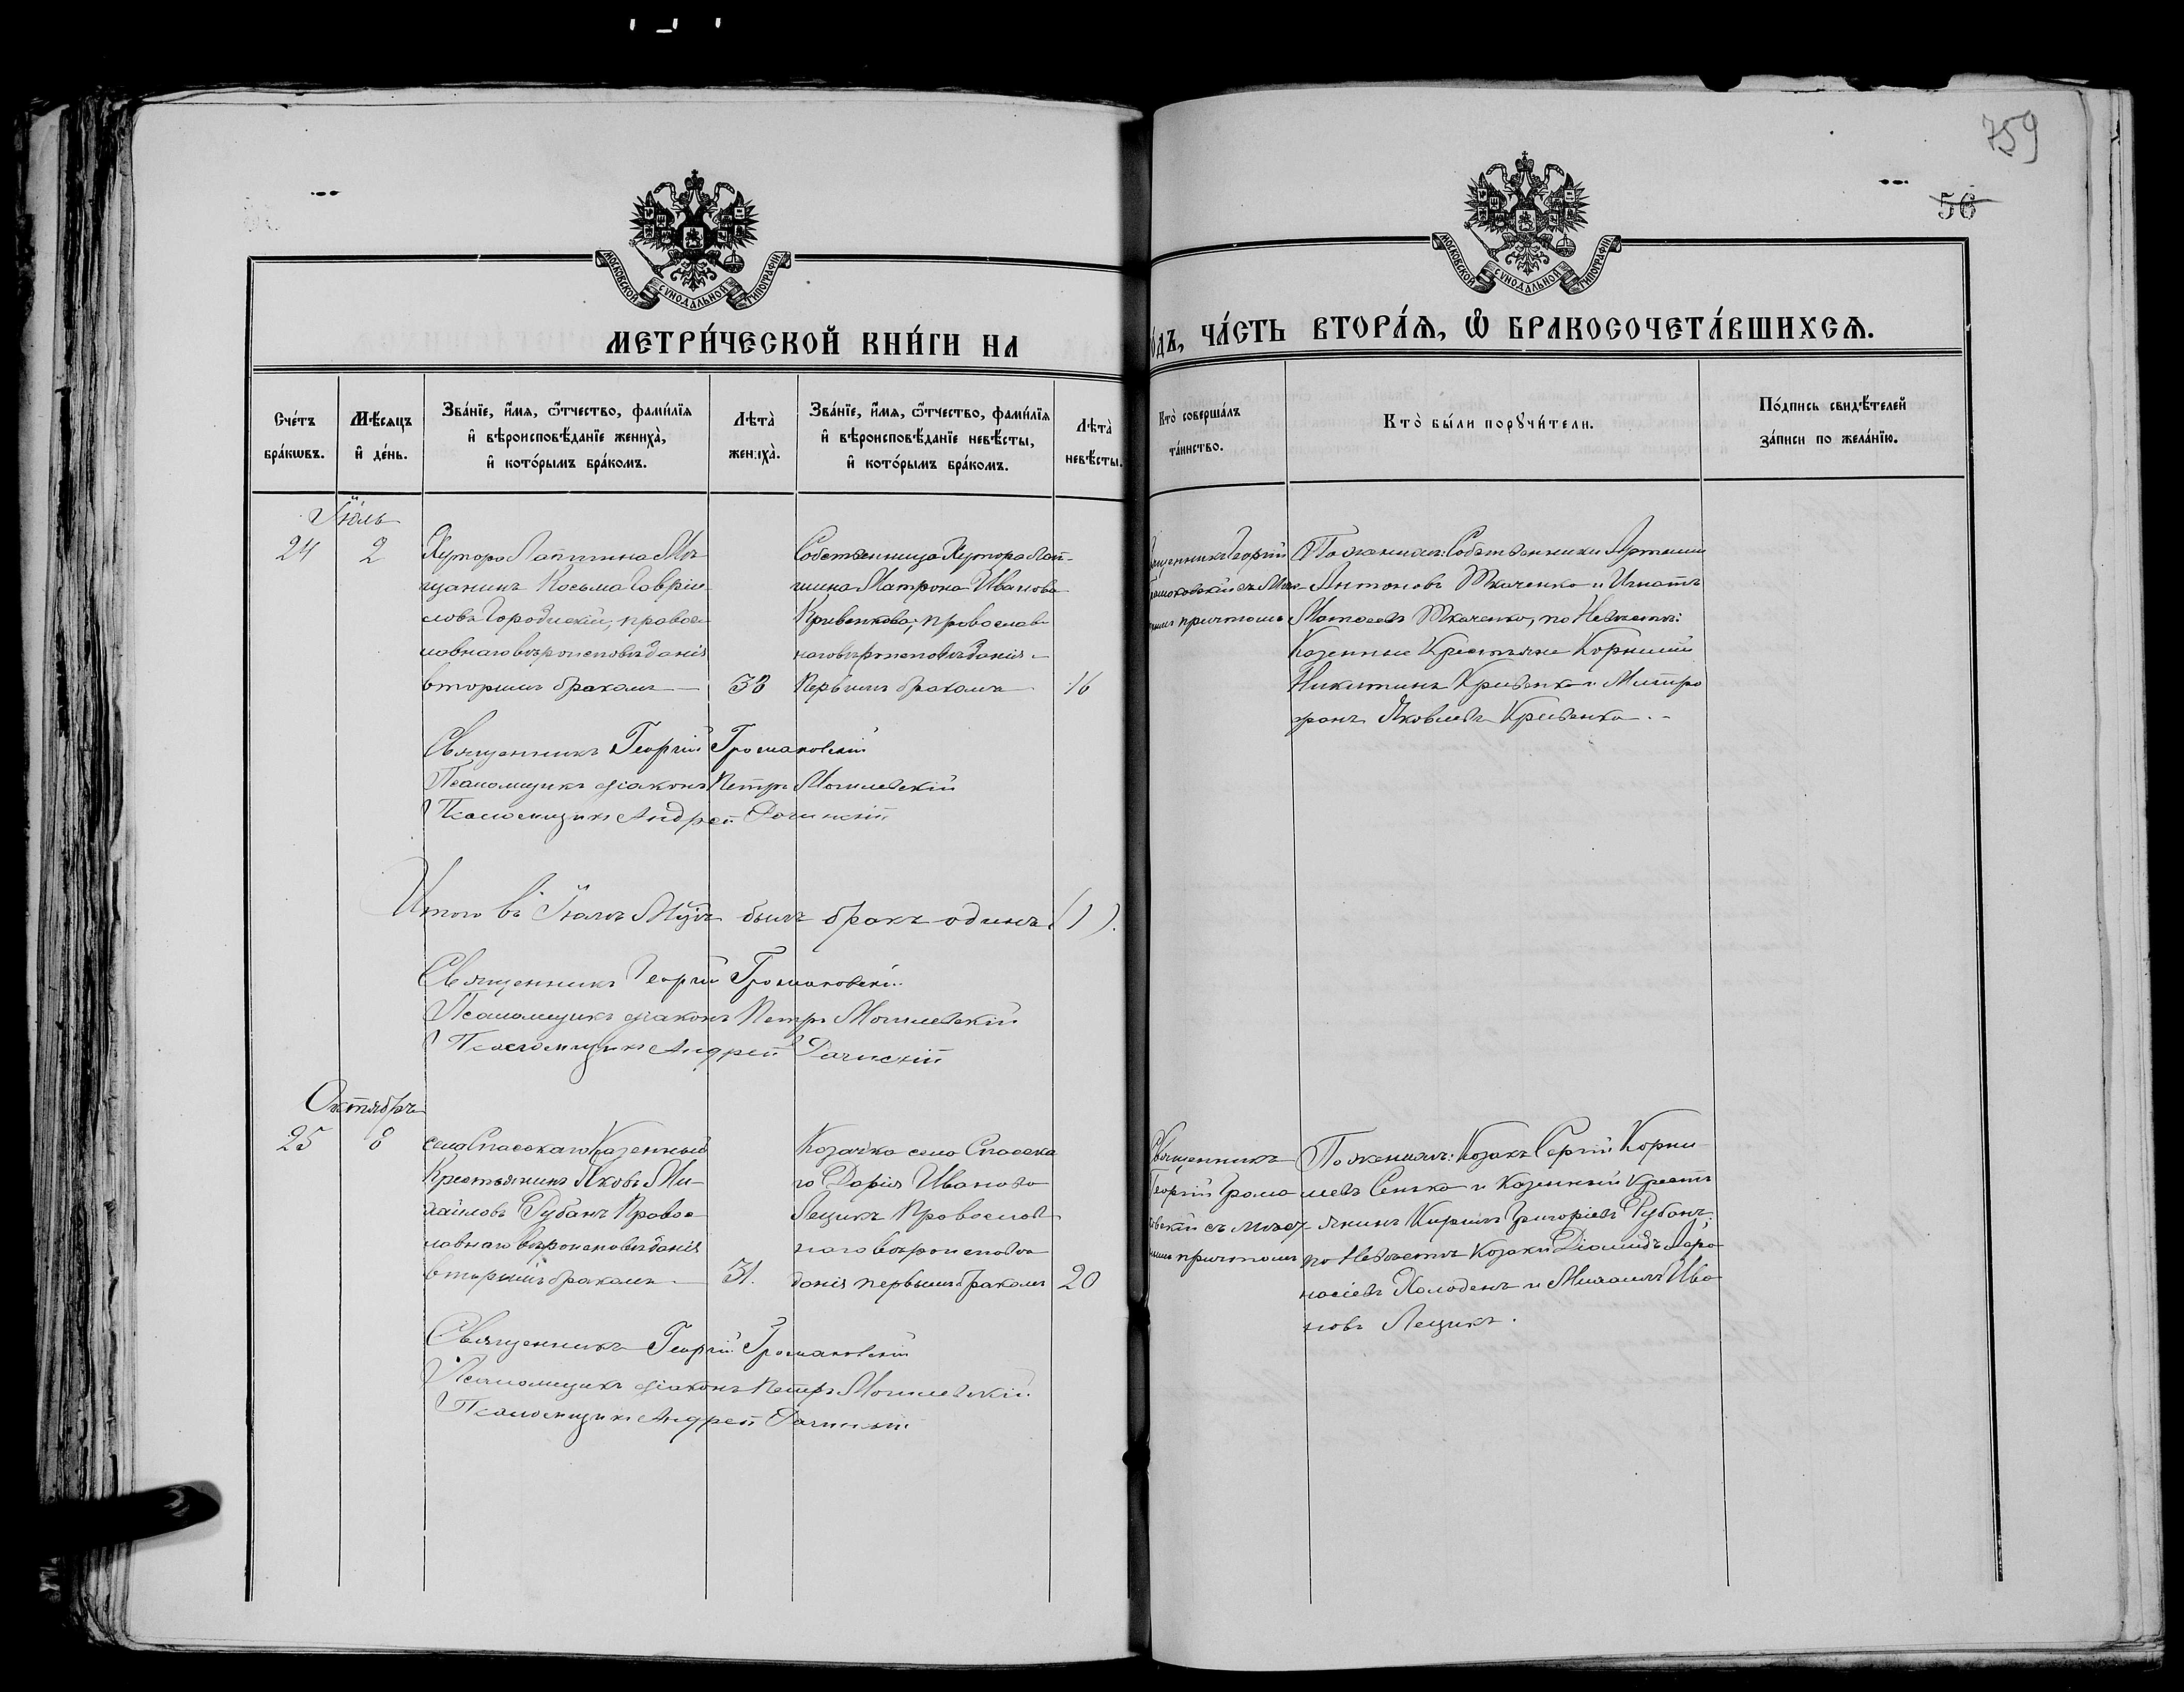 759
56
МОСКОВСКОЙ СѴНОДАЛЬНОЙ ТИПОГРАФІИ
МОСКОВСКОЙ СѴНОДАЛЬНОЙ ТИПОГРАФІИ
МЕТРИ́ЧЕСКОЙ КНИ́ГИ НА
О́ДЪ, ЧА́СТЬ ВТОРА́Ѧ, Ѿ БРАКОСОЧЕТА́ВШИХСѦ.
Сче́тъ бра́кѡвъ.
Мѣ́сѧцъ и҆ де́нь.
Зва́нїе, и҆́мѧ, ѻ҆́тчество, фами́лїѧ и҆ вѣроисповѣ́данїе жениха̀, и҆ кото́рымъ бра́комъ.
Лѣта̀ жениха̀.
Зва́нїе, и҆́мѧ, ѻ҆́тчество, фами́лїѧ и҆ вѣроисповѣ́данїе невѣ́сты, и҆ кото́рымъ бра́комъ.
Лѣта̀ невѣ́сты.
Кто̀ соверша́лъ та́инство.
Кто̀ бы́ли порꙋчи́тели.
По́дпись свидѣ́телей за́писи по жела́нїю.
Іюль
24
2
Хутора Лапшина Мѣ-
щанинъ Косьма Гаврiи-
ловъ Городискій, правос-
лавнаго вѣроисповѣданія
вторымъ бракомъ
38
Собственница Хутора Лап-
шина Матрона Иванова
Кривенкова, православ-
наго вѣроисповѣданія
первымъ бракомъ
16
Священникъ Георгій
Громаковскій съ Мѣст-
нымъ причтомъ
По женихѣ: Собственники Артемій
Антоновъ Ткаченко и Игнатъ
Матвеевъ Ткаченко, по Невѣстѣ:
Казенные Крестьяне Корнилій
Никитинъ Кривенко и Митро
фанъ Яковлевъ Кривенко.
Священникъ Георгій Громаковскій
Псаломщикъ діаконъ Петръ Могилевскій
Псаломщикъ Андрей
Итого въ Іюлѣ М-цѣ былъ бракъ одинъ (1).
Священникъ Георгій Громаковскій
Псаломщикъ діаконъ Петръ Могилевскій
Псаломщикъ Андрей
Октябрь
25
8
села Спаскаго Казенный
Крестьянинъ Яковъ Ми-
хайловъ Рубанъ Правос-
лавнаго вѣроисповѣданія
вторымъ бракомъ
31.
Козачка села Спаска
го Дарія Иванова
Лещикъ Православ
наго вѣроисповѣ
данія первымъ бракомъ
20
Священникъ
Георгій Грома
ковскій съ мѣст-
нымъ причтомъ
По женихѣ: Козакъ Сергій Корни-
ліевъ Сенько и Казенный Крестъ
янинъ Кириллъ Григоріевъ Рубанъ;
по Невѣстѣ Козаки Діомидъ Афа
насіевъ Колоденъ и Михаилъ Ива
новъ Лещикъ.
Священникъ Георгій Громаковскій
Псаломщикъ діаконъ Петръ Могилевскій
Псаломщикъ Андрей